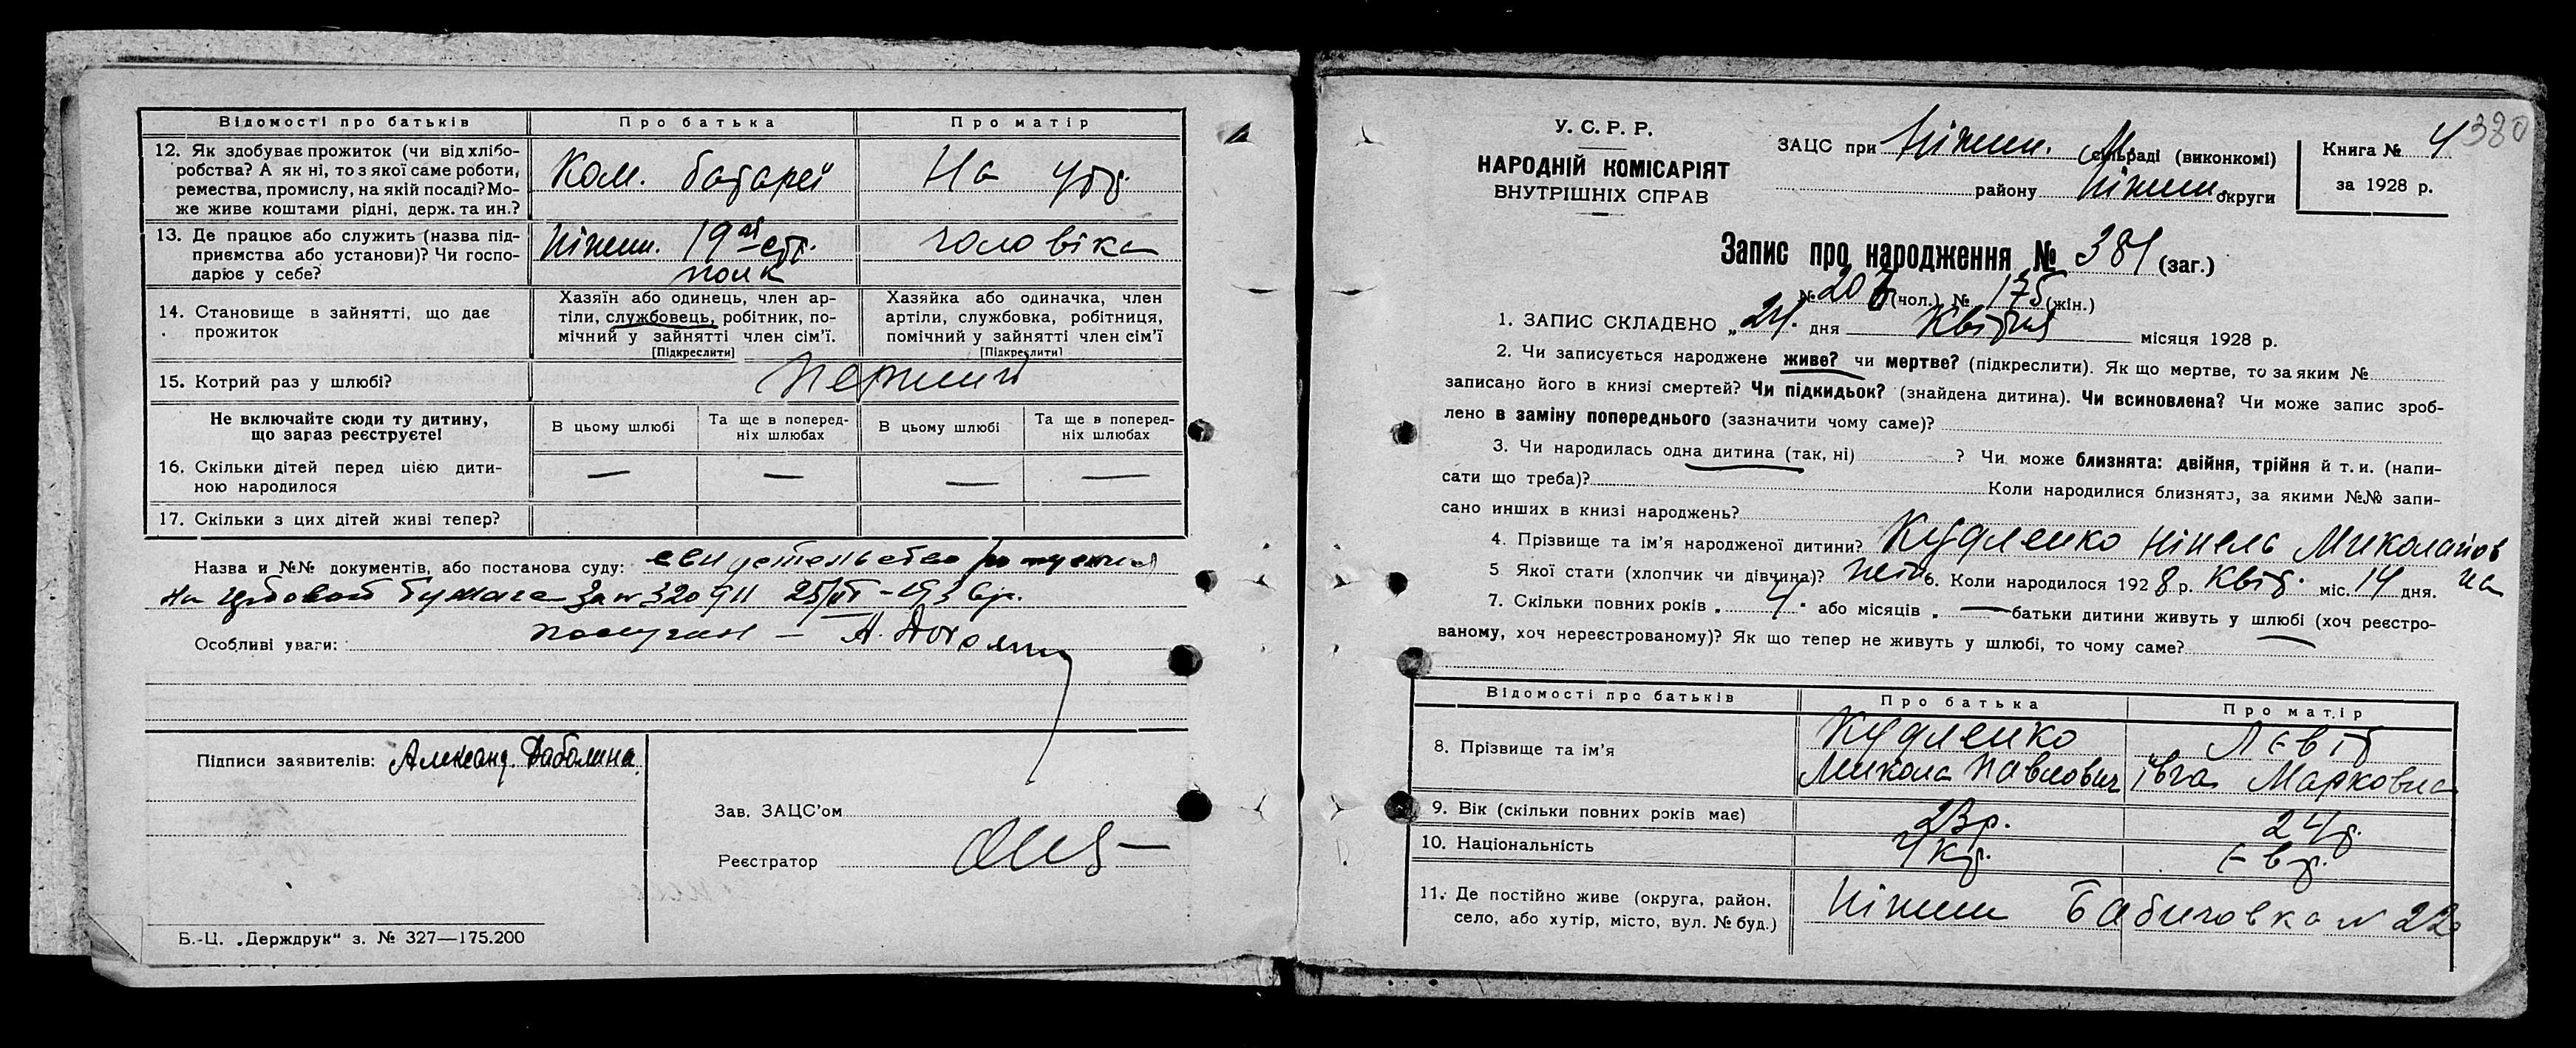 Відомості про батьків
Про батька
Про матір
12. Як здобуває прожиток (чи від хлібо-
робства? А як ні, то з якої саме роботи,
ремества, промислу, на якій посаді? Мо-
же живе коштами рідні, держ. та ин.?
Ком. батареї
На утр.
13. Де працює або служить (назва під-
приємства або установи)? Чи госпо-
дарює у себе?
Ніжин. 19
полк
чоловіка
14. Становище в зайнятті, що дає
прожиток
Хазяїн або одинець, член ар-
тіли, службовець, робітник, по-
мічний у зайнятті член сім’ї.
[Підкреслити]
Хазяйка або одиначка, член
артіли, службовка, робітниця,
помічний у зайнятті член сім’ї
[Підкреслити]
15. Котрий раз у шлюбі?
Перший
Не включайте сюди ту дитину,
що зараз реєструєте!
В цьому шлюбі
Та ще в поперед-
ніх шлюбах
В цьому шлюбі
Та ще в поперед-
ніх шлюбах
16. Скільки дітей перед цією дити-
ною народилося
— — — —
17. Скільки з цих дітей живі тепер?
Назва и №№ документів, або постанова суду: свидетельство рождения
на гербовой бумаге за № 320911
Особливі уваги:
получил — А.
Підписи заявителів: Александ.
Зав. ЗАЦС’ом
Реєстратор
Б.-Ц. „Держдрук“ з. № 327—175.200
У. С. Р. Р.
НАРОДНІЙ КОМІСАРІЯТ
ВНУТРІШНІХ СПРАВ
ЗАЦС при Ніжин. М. сільраді (виконкомі)
району Ніжин. округи
Книга № 4
за 1928 р.
380
Запис про народження № 381 (заг.)
№ 206 (чол.) № 175 (жін.)
1. ЗАПИС СКЛАДЕНО „21. дня Квітня місяця 1928 р.
2. Чи записується народжене живе? чи мертве? (підкреслити). Як що мертве, то за яким №
записано його в книзі смертей? Чи підкидьок? (знайдена дитина). Чи всиновлена? Чи може запис зроб-
лено в заміну попереднього (зазначити чому саме)?
3. Чи народилась одна дитина (так, ні) ? Чи може близнята: двійня, трійня й т. и. (напи-
сати що треба)? Коли народилися близнята, за якими №№ запи-
сано инших в книзі народжень?
4. Прізвище та ім’я народженої дитини? Кудленко Нінель Миколайов
на
5 Якої стати (хлопчик чи дівчина)? жін. 6. Коли народилося 1928 р. Квіт. міс. 14 дня.
7. Скільки повних років „ 4 “ або місяців „ — батьки дитини живуть у шлюбі (хоч реєстро-
ваному, хоч нереєстрованому)? Як що тепер не живуть у шлюбі, то чому саме?
Відомості про батьків
Про батька
Про матір
8. Прізвище та ім’я
Кудленко
Микола Павлович
Лєвіт
Марковна
9. Вік (скільки повних років має)
23 р.
24 р.
10. Національність
Укр.
Євр.
11. Де постійно живе (округа, район,
село, або хутір, місто, вул. № буд.)
Ніжин Бабичовка № 22